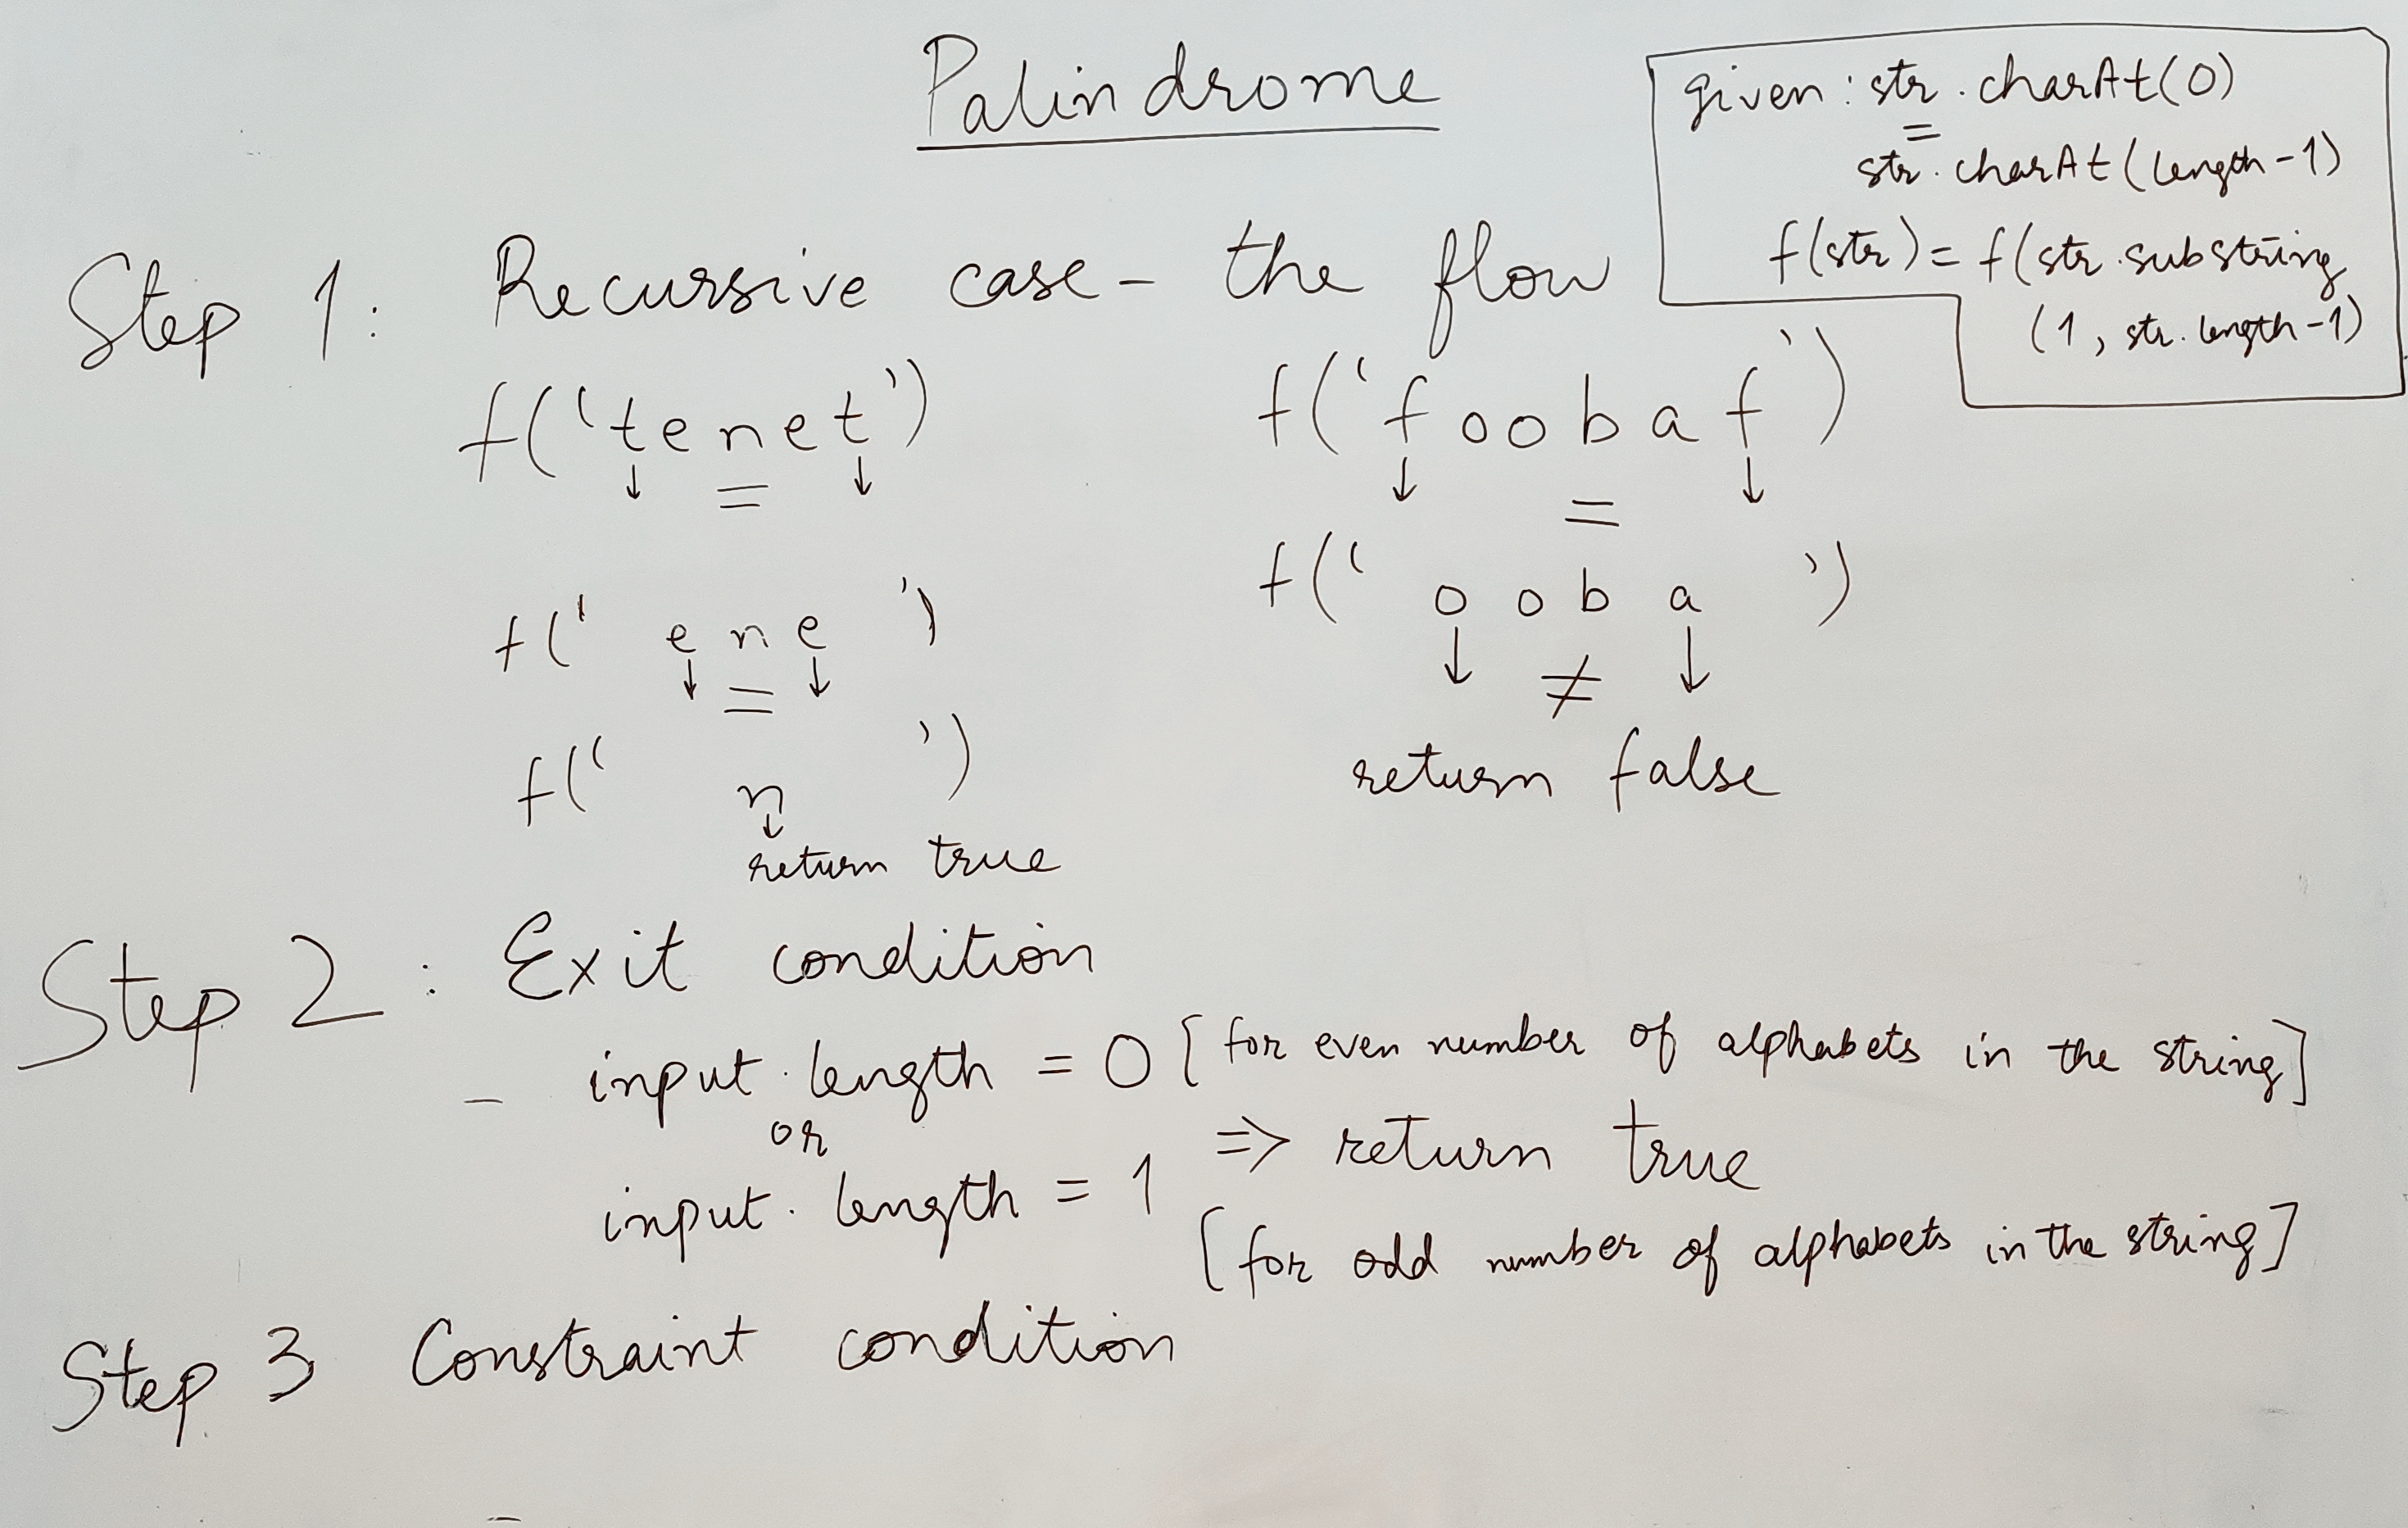 Palindrome
given: str.charAt(0)
=
str.charAt(length-1)
f(str) = f(str.substring
(1, str.length-1)
Step 1: Recursive case - the flow
f('tenet')
↓ = ↓
f('ene')
↓ = ↓
f('n')
↓
return true
f('foobaf')
↓ = ↓
f('ooba')
↓ ≠ ↓
return false
Step 2: Exit condition
- input.length = 0 [for even number of alphabets in the string]
or
⇒ return true
input.length = 1
[for odd number of alphabets in the string]
Step 3 Constraint condition